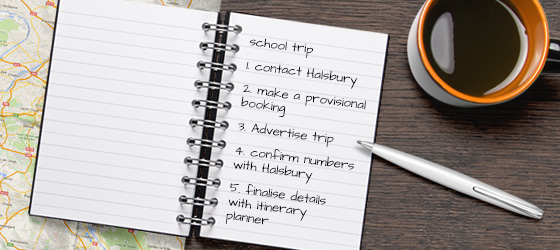 school trip
1. contact Halsbury
2. make a provisional
booking
3. Advertise trip
4. confirm numbers
with Halsbury
5. finalise details
with itinerary
planner